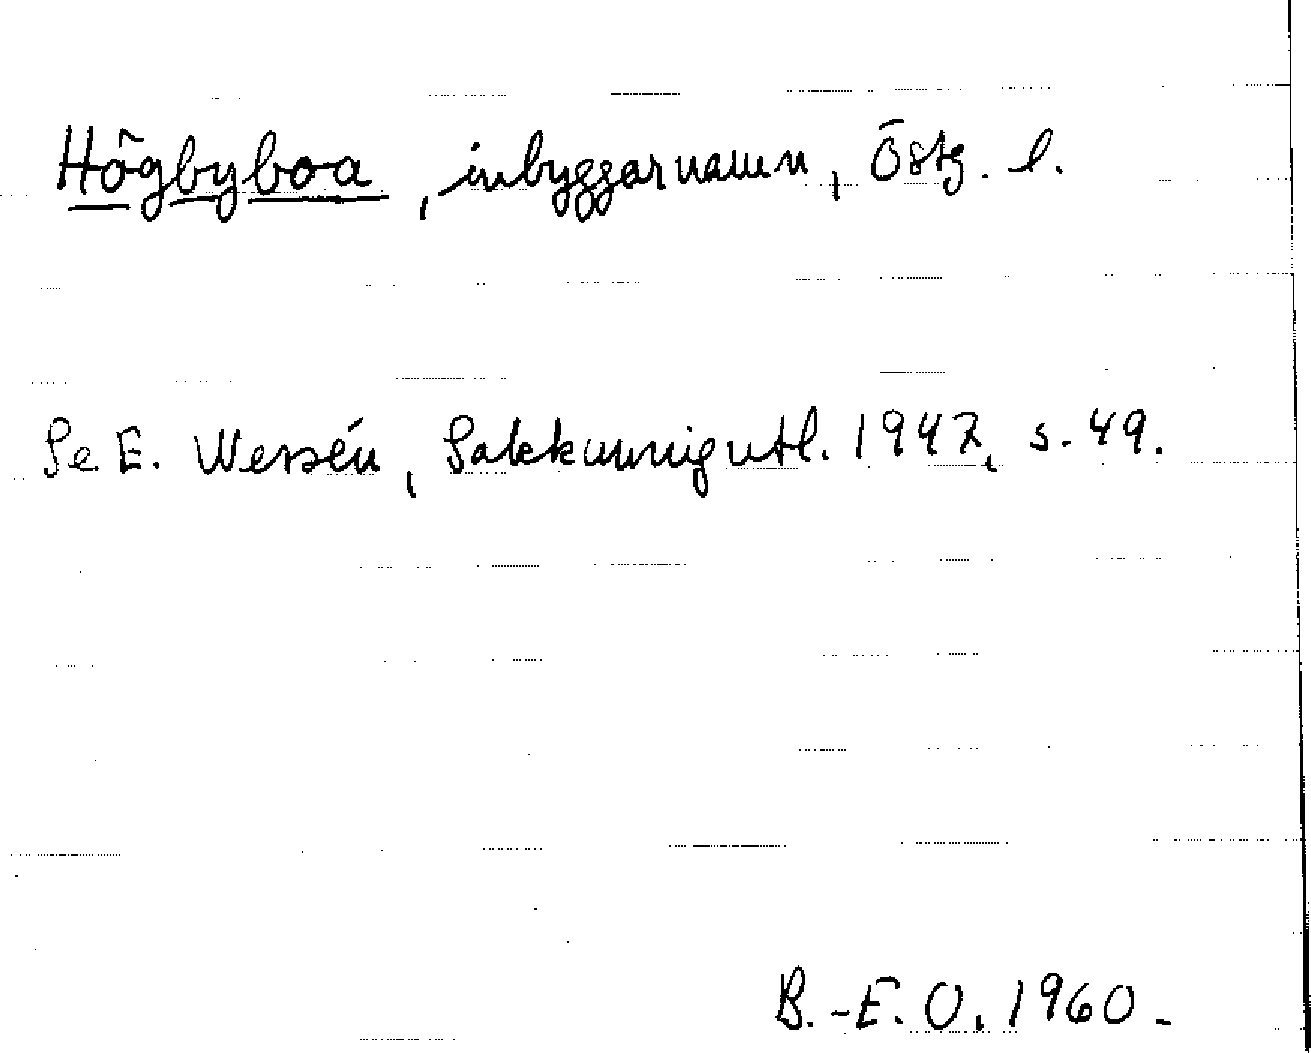 Högbyboa, inbyggarnamn, Östg. l.
Se E. Wessén, Sakkunnigutl. 1947, s. 49.
B.-E. O. 1960.